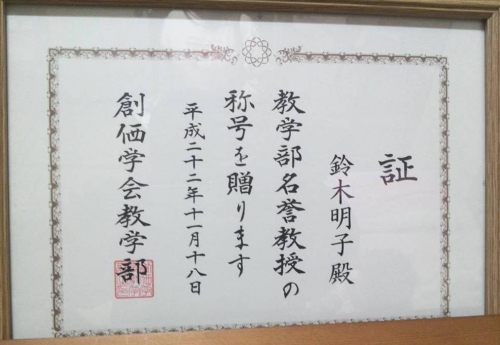 証
鈴木明子殿
教学部名誉教授の
称号を贈ります
平成二十二年十一月十八日
創価学会教学部